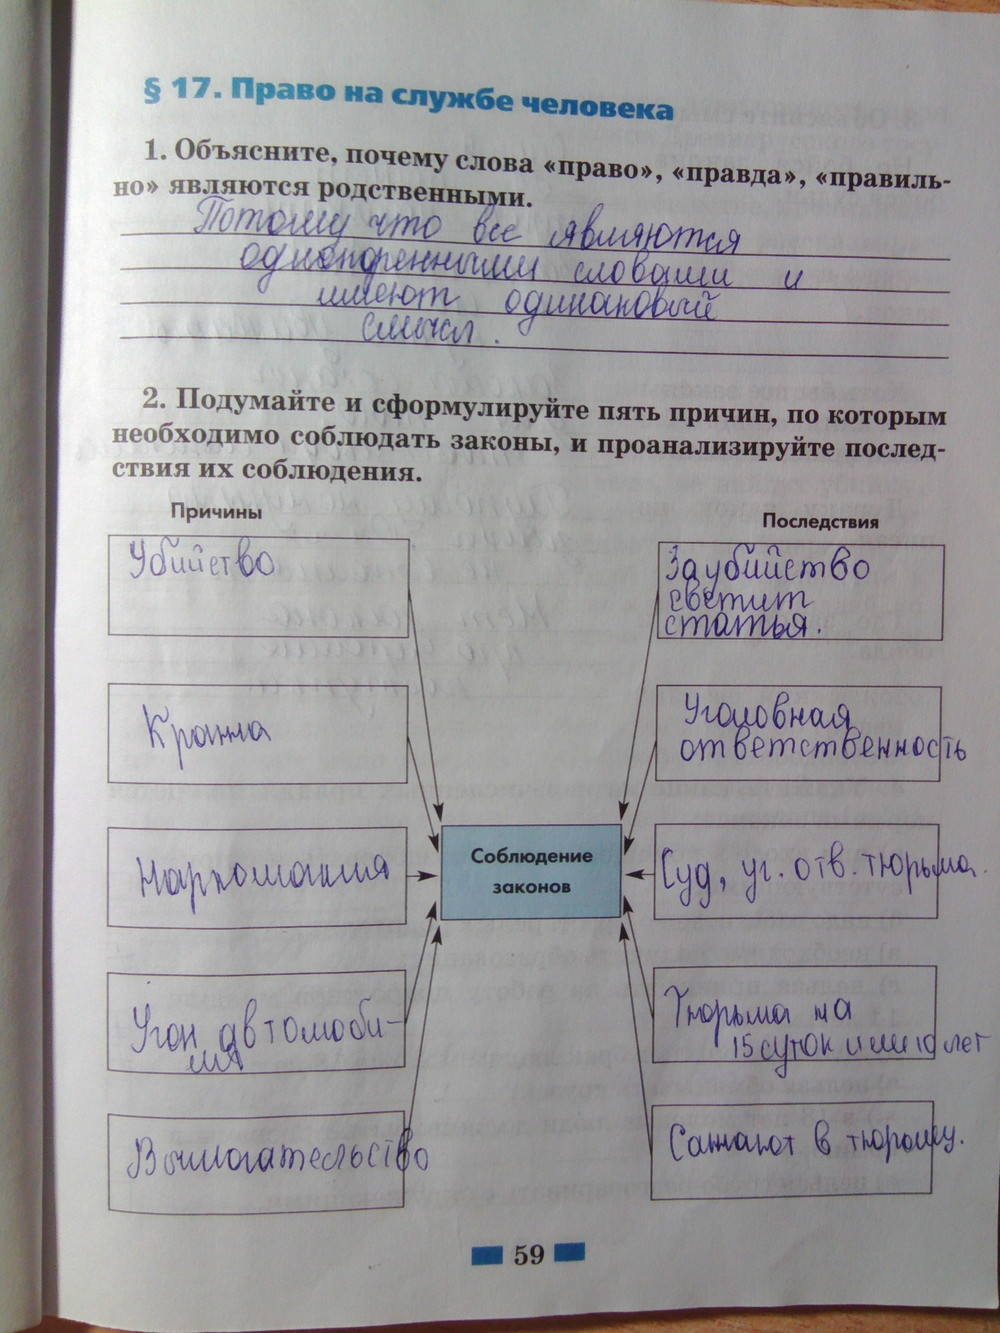 § 17. Право на службе человека
1. Объясните, почему слова «право», «правда», «правиль-
но» являются родственными.
Потому что все являются
однокоренными словами и
имеют одинаковый
смысл.
2. Подумайте и сформулируйте пять причин, по которым
необходимо соблюдать законы, и проанализируйте послед-
ствия их соблюдения.
Причины
Последствия
Убийство
За убийство
светит
статья.
Кража
Уголовная
ответственность
Соблюдение
законов
Наркомания
Суд, уг. отв. тюрьма.
Угон автомоби-
ля
Тюрьма на
15 суток или 10 лет
Вымогательство
Сажают в тюрьму.
59